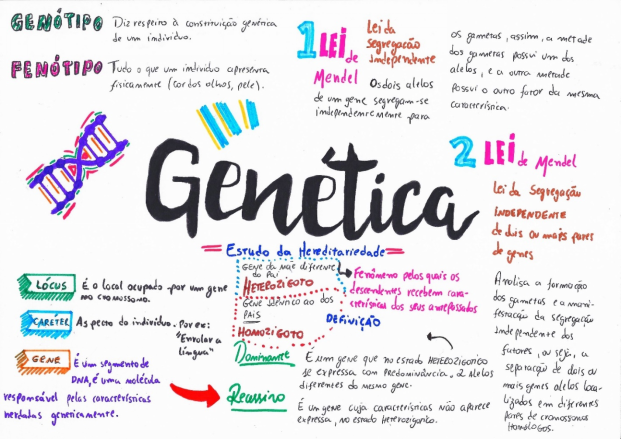 GENÓTIPO
Diz respeito à constituição genética
de um indivíduo.
FENÓTIPO
Tudo o que um indivíduo apresenta
fisicamente (cor dos olhos, pele).
1 LEI de
Mendel
Lei da
segregação
Independente
Os dois alelos
de um gene segregam-se
independentemente para
os gametas, assim, a metade
dos gametas possui um dos
alelos, e a outra metade
possui o outro fator da mesma
característica.
Genética
Estudo da Hereditariedade
2 LEI de Mendel
Lei da Segregação
INDEPENDENTE
de dois ou mais pares
de genes
Analisa a formação
dos gametas e a mani-
festação da segregação
Independente dos
fatores, ou seja, a
separação de dois ou
mais genes alelos loca-
lizados em diferentes
pares de cromossomos
Homólogos.
LÓCUS
É o local ocupado por um gene
no cromossomo.
CARÁTER
Aspecto do indivíduo. Por ex:
"Enrolar a
língua"
GENE
É um segmento de
DNA, é uma molécula
responsável pelas características
herdadas geneticamente.
Gene da mãe diferente
do Pai
HETEROZIGOTO
Gene idêntico ao dos
PAIS
HOMOZIGOTO
Fenômeno pelos quais os
descendentes recebem cara-
cterísticas dos seus antepassados
DEFINIÇÃO
Dominante
É um gene que no estado HETEROZIGOTICO
se expressa com predominância. 2 Alelos
diferentes do mesmo gene.
Recessivo
É um gene cuja características não aparece
expressa, no estado Heterozigotico.